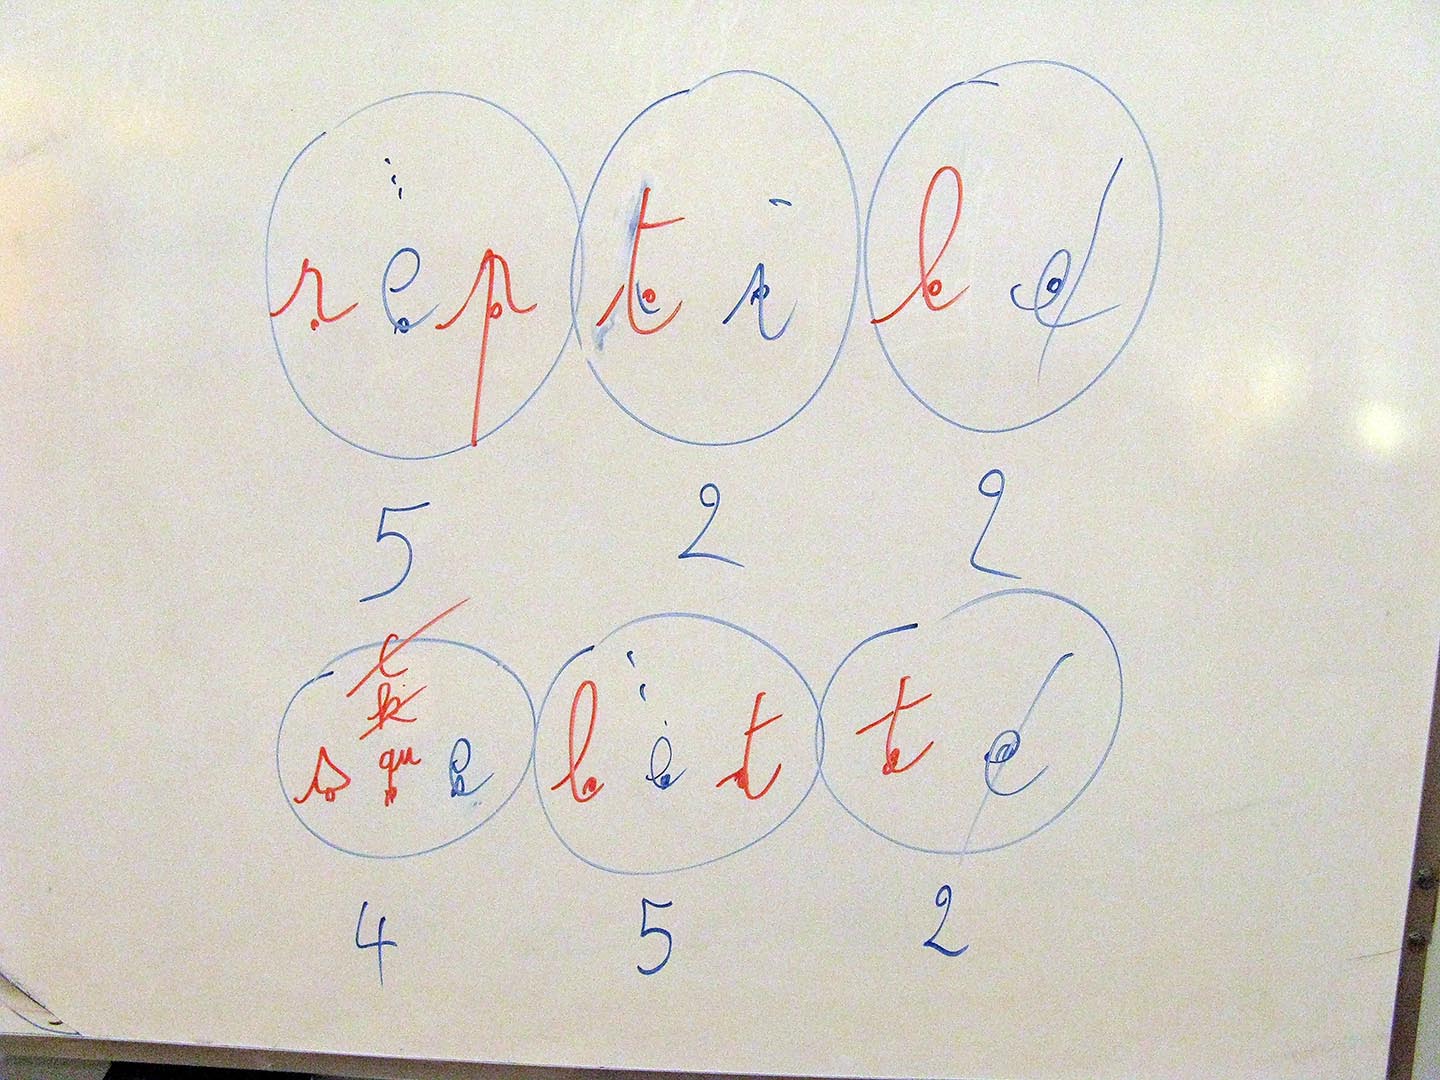 rep ti le
5 2 2
c
k
s que let te
4 5 2